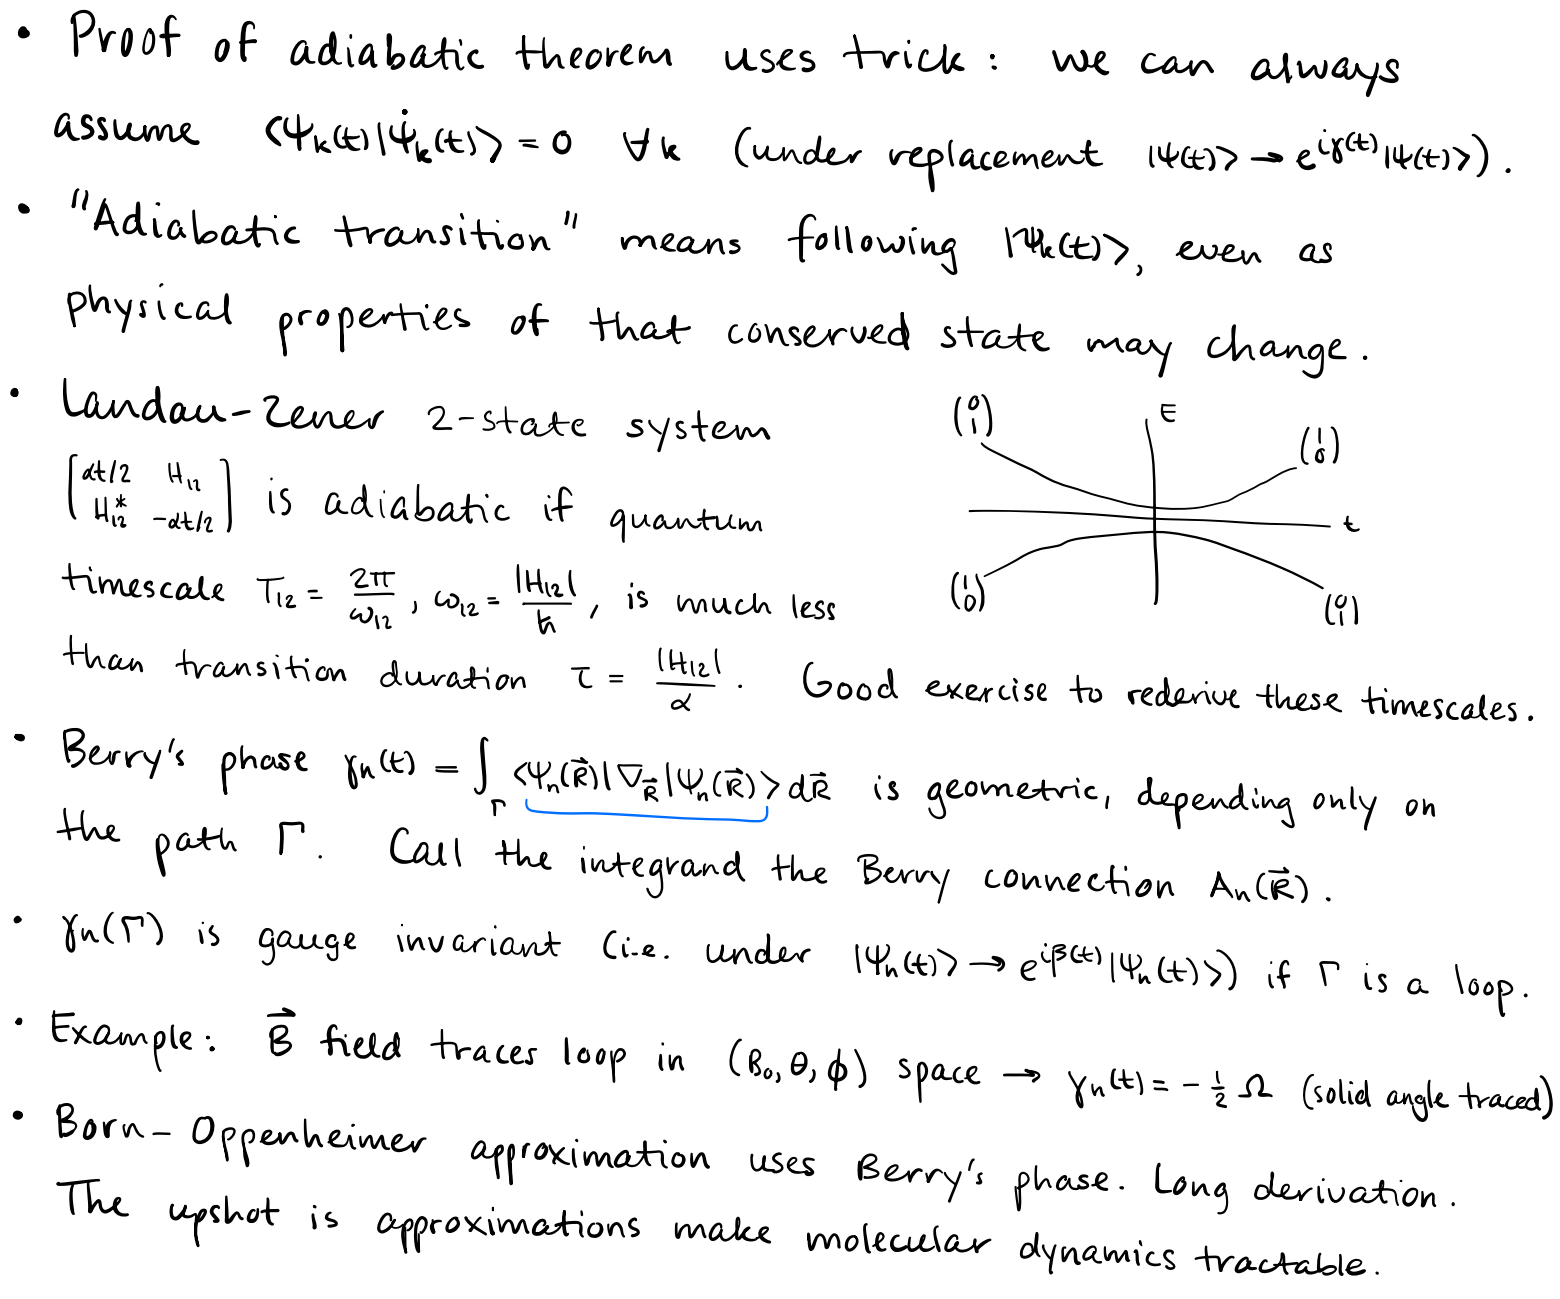 • Proof of adiabatic theorem uses trick: we can always
assume ⟨Ψₖ(t)|Ψ̇ₖ(t)⟩ = 0 ∀k (under replacement |Ψ(t)⟩ → e^{iγ(t)}|Ψ(t)⟩).
• "Adiabatic transition" means following |Ψₖ(t)⟩, even as
physical properties of that conserved state may change.
• Landau-Zener 2-state system
[αt/2 H₁₂
H₁₂* -αt/2] is adiabatic if quantum
timescale T₁₂ = 2π/ω₁₂, ω₁₂ = |H₁₂|/ħ, is much less
than transition duration τ = |H₁₂|/α. Good exercise to rederive these timescales.
(0 1)
E
(1 0)
t
(1 0)
(0 1)
• Berry's phase γₙ(t) = ∫_Γ ⟨Ψₙ(R⃗)|∇_R⃗|Ψₙ(R⃗)⟩dR⃗ is geometric, depending only on
the path Γ. Call the integrand the Berry connection Aₙ(R⃗).
• γₙ(Γ) is gauge invariant (i.e. under |Ψₙ(t)⟩ → e^{iβ(t)}|Ψₙ(t)⟩) if Γ is a loop.
• Example: B⃗ field traces loop in (B₀, θ, ϕ) space → γₙ(t) = -½ Ω (solid angle traced)
• Born-Oppenheimer approximation uses Berry's phase. Long derivation.
The upshot is approximations make molecular dynamics tractable.